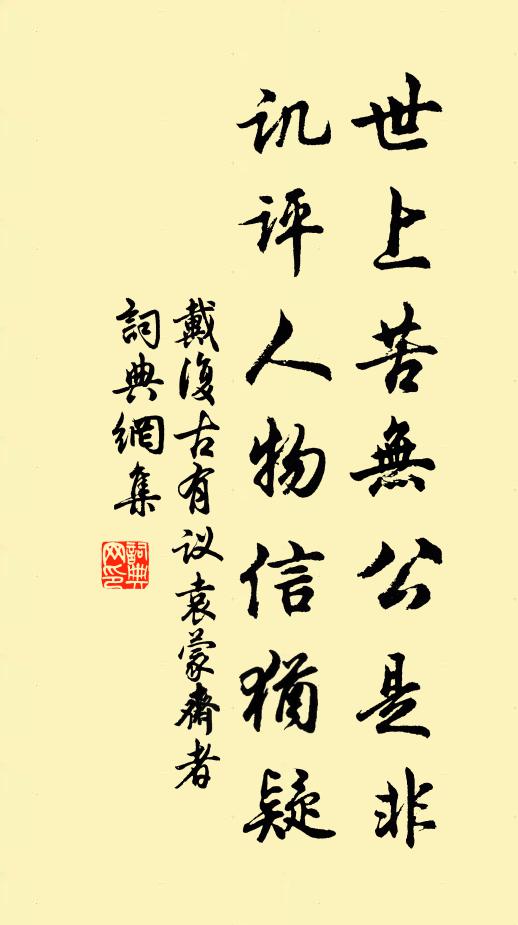 世上苦無公是非
讥评人物信猶疑
戴復古有议袁蒙齋者
詞典網集
詞典网印